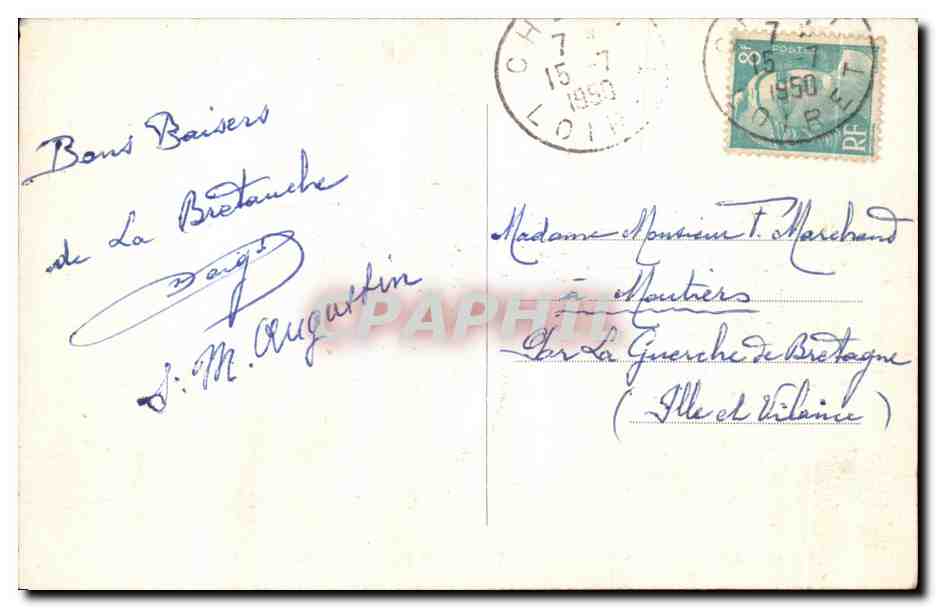 Bons Baisers
de La Bretauche
S. M. Augustin
7
15 -7
1950
LOIR
7
15 -7
1950
LOIRET
8F
POSTES
RF
Madame Monsieur F. Marchand
à Moutiers
Par La Guerche de Bretagne
(Ille et Vilaine)
CPAPHIL